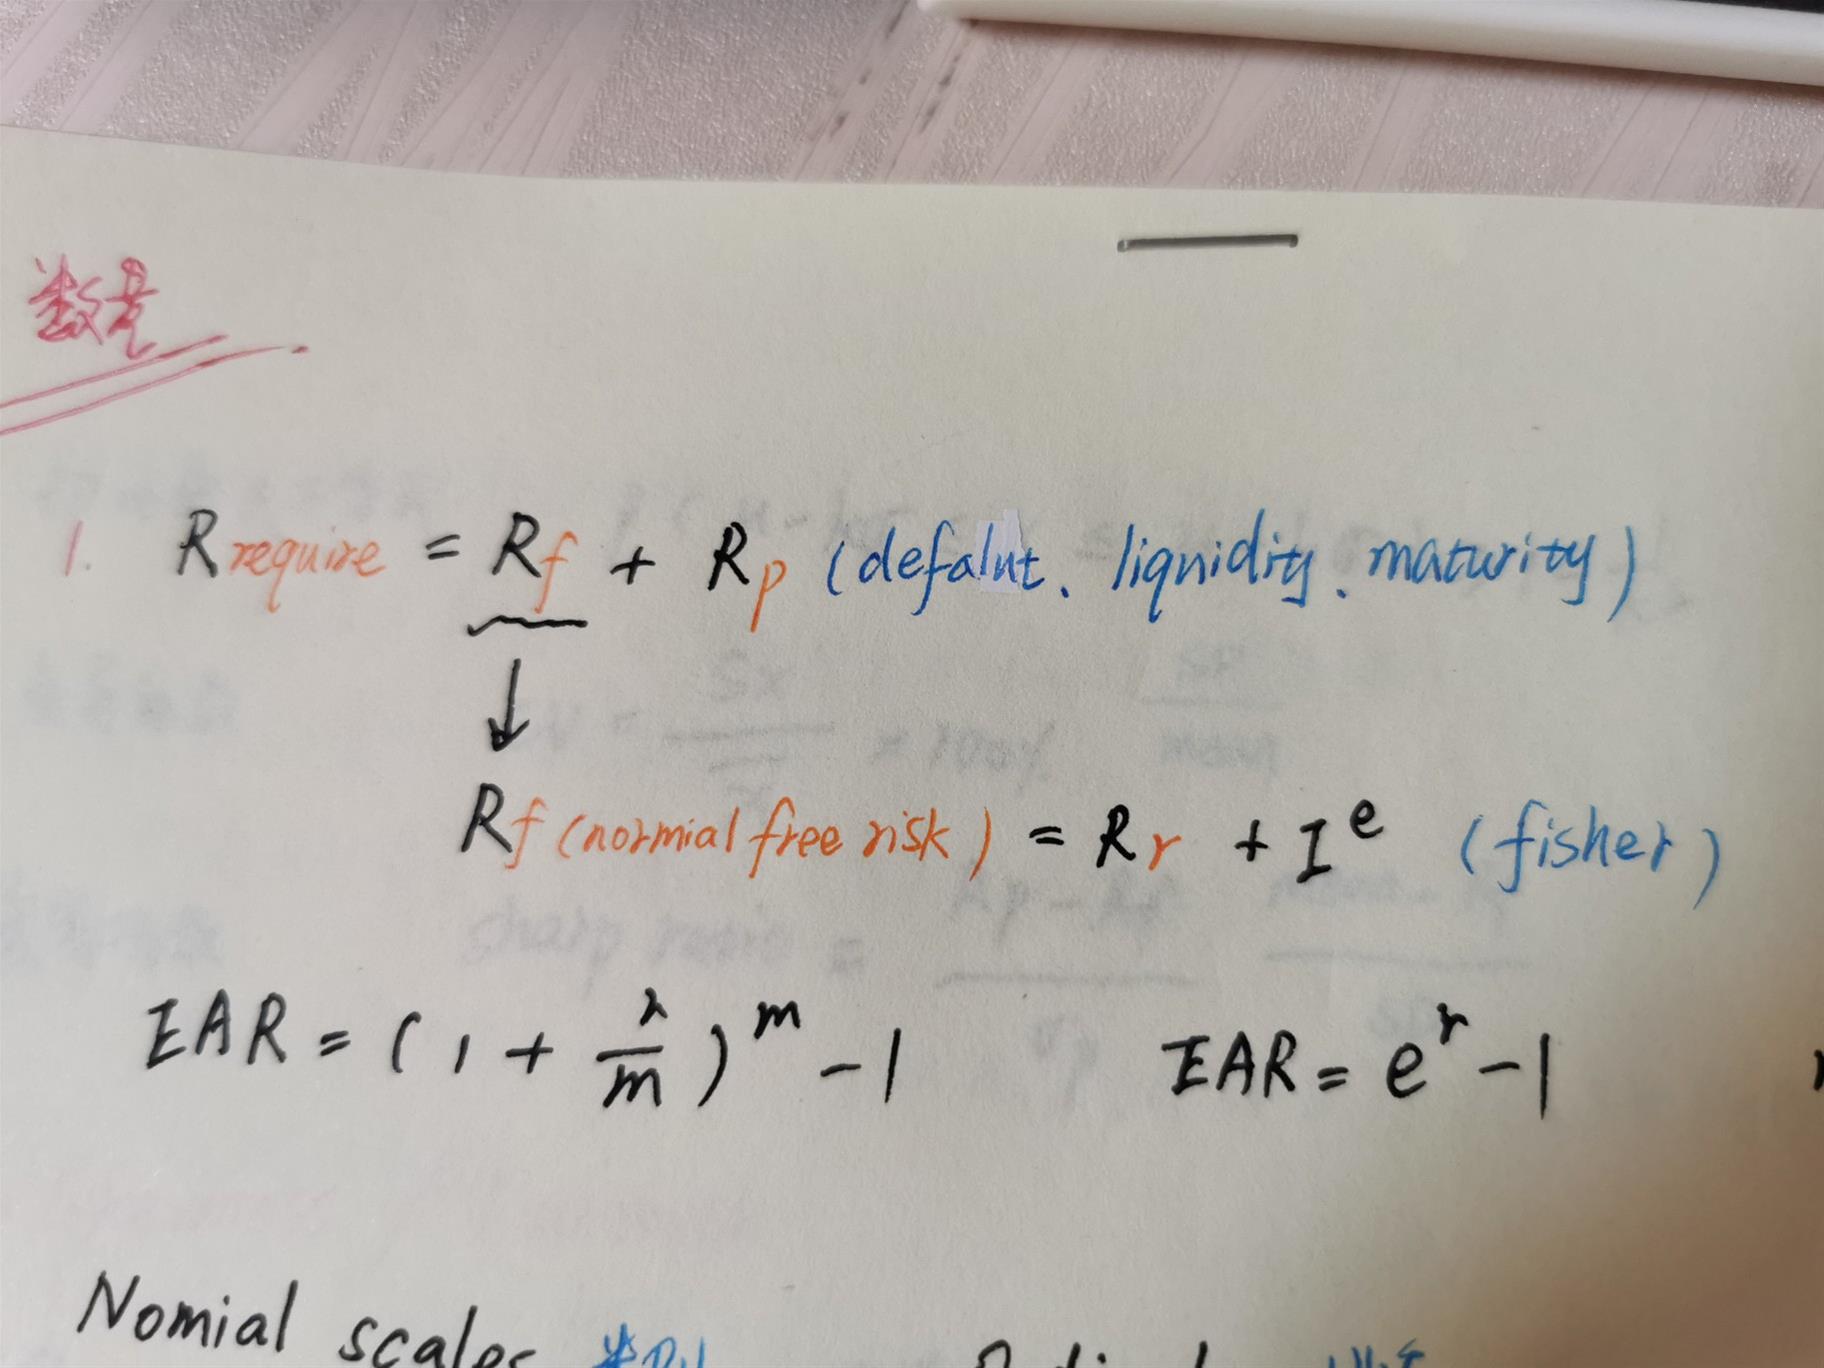 数量
1. R require = Rf + Rp (defalut、liquidity、maturity)
↓
Rf (normial free risk) = Rr + I^e (fisher)
EAR = (1 + r/m)^m - 1 EAR = e^r - 1
Nomial scales